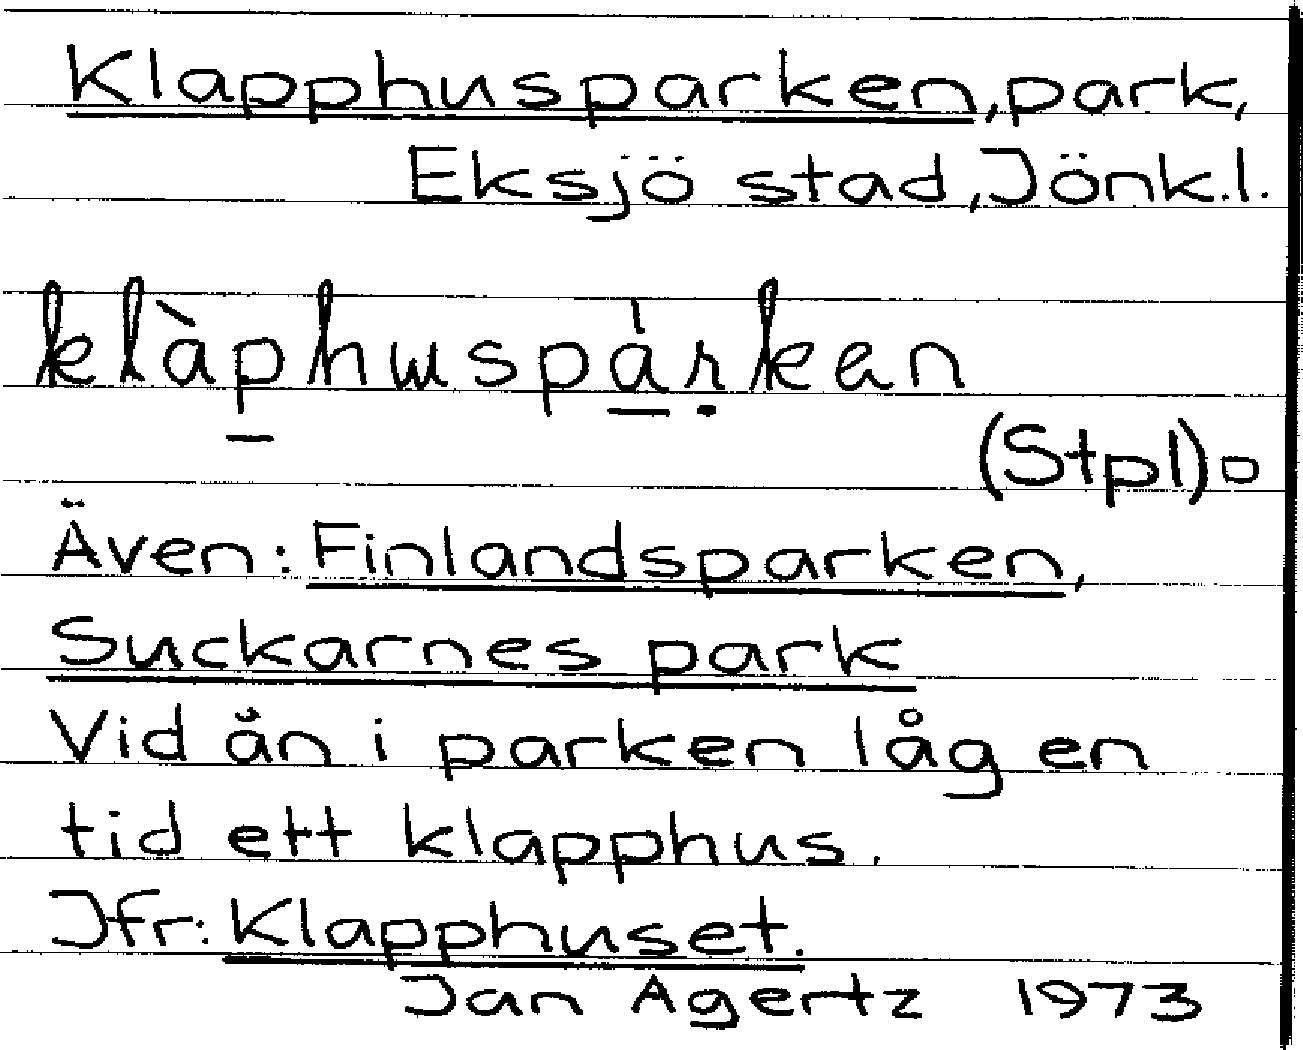 Klapphusparken, park,
Eksjö stad, Jönk.l.
klàp̲huspa̲̍ṛken
(Stpl)o
Även: Finlandsparken,
Suckarnes park
Vid ån i parken låg en
tid ett klapphus.
Jfr: Klapphuset.
Jan Agertz 1973